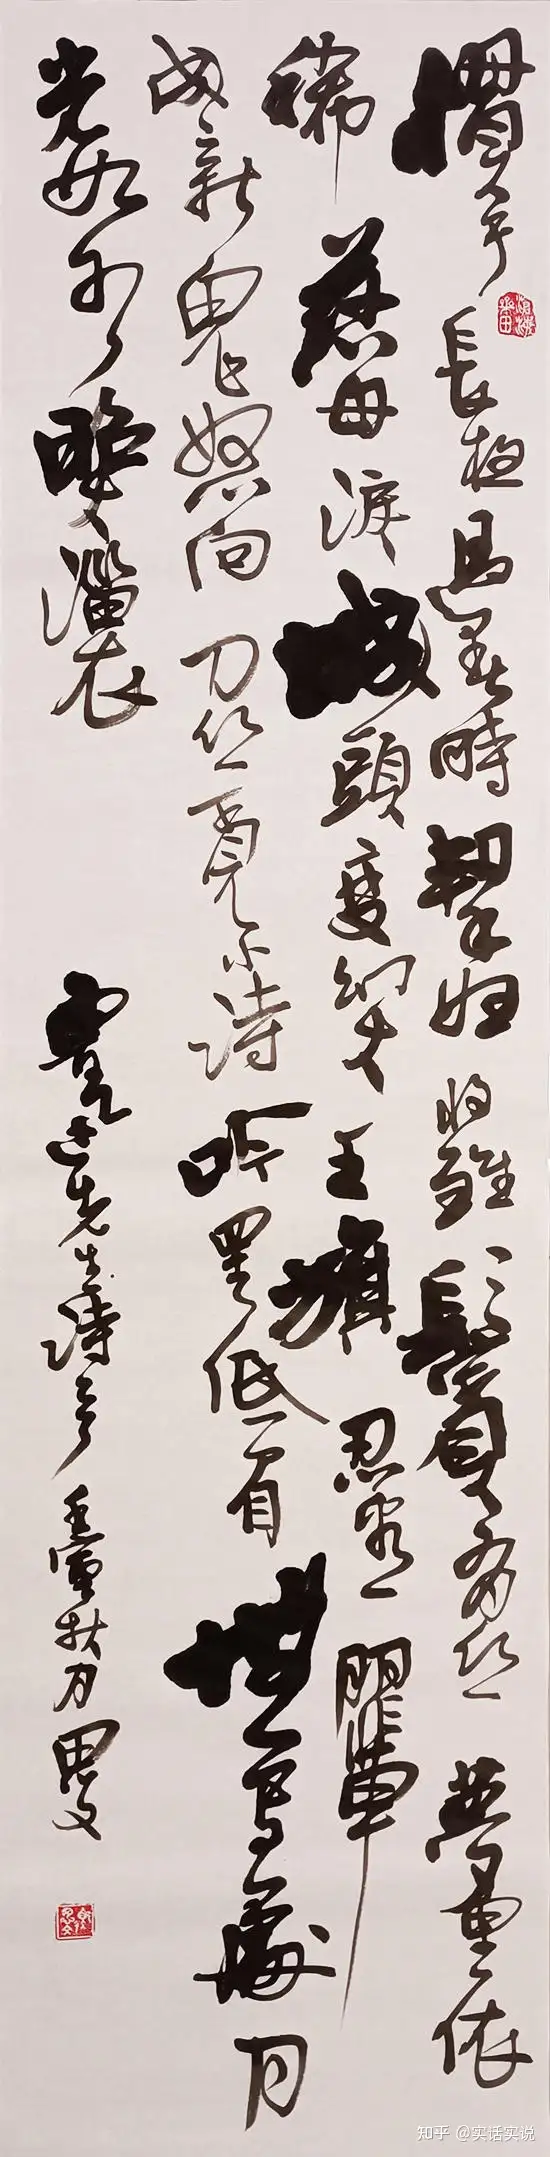 慣于長夜過春時挈婦將雛鬢有絲夢里依
稀慈母淚城頭變幻大王旗忍看朋輩
成新鬼怒向刀叢覓小詩吟罷低眉無寫處月
光如水照緇衣
魯迅先生詩 壬寅秋月
知乎 @实话实说